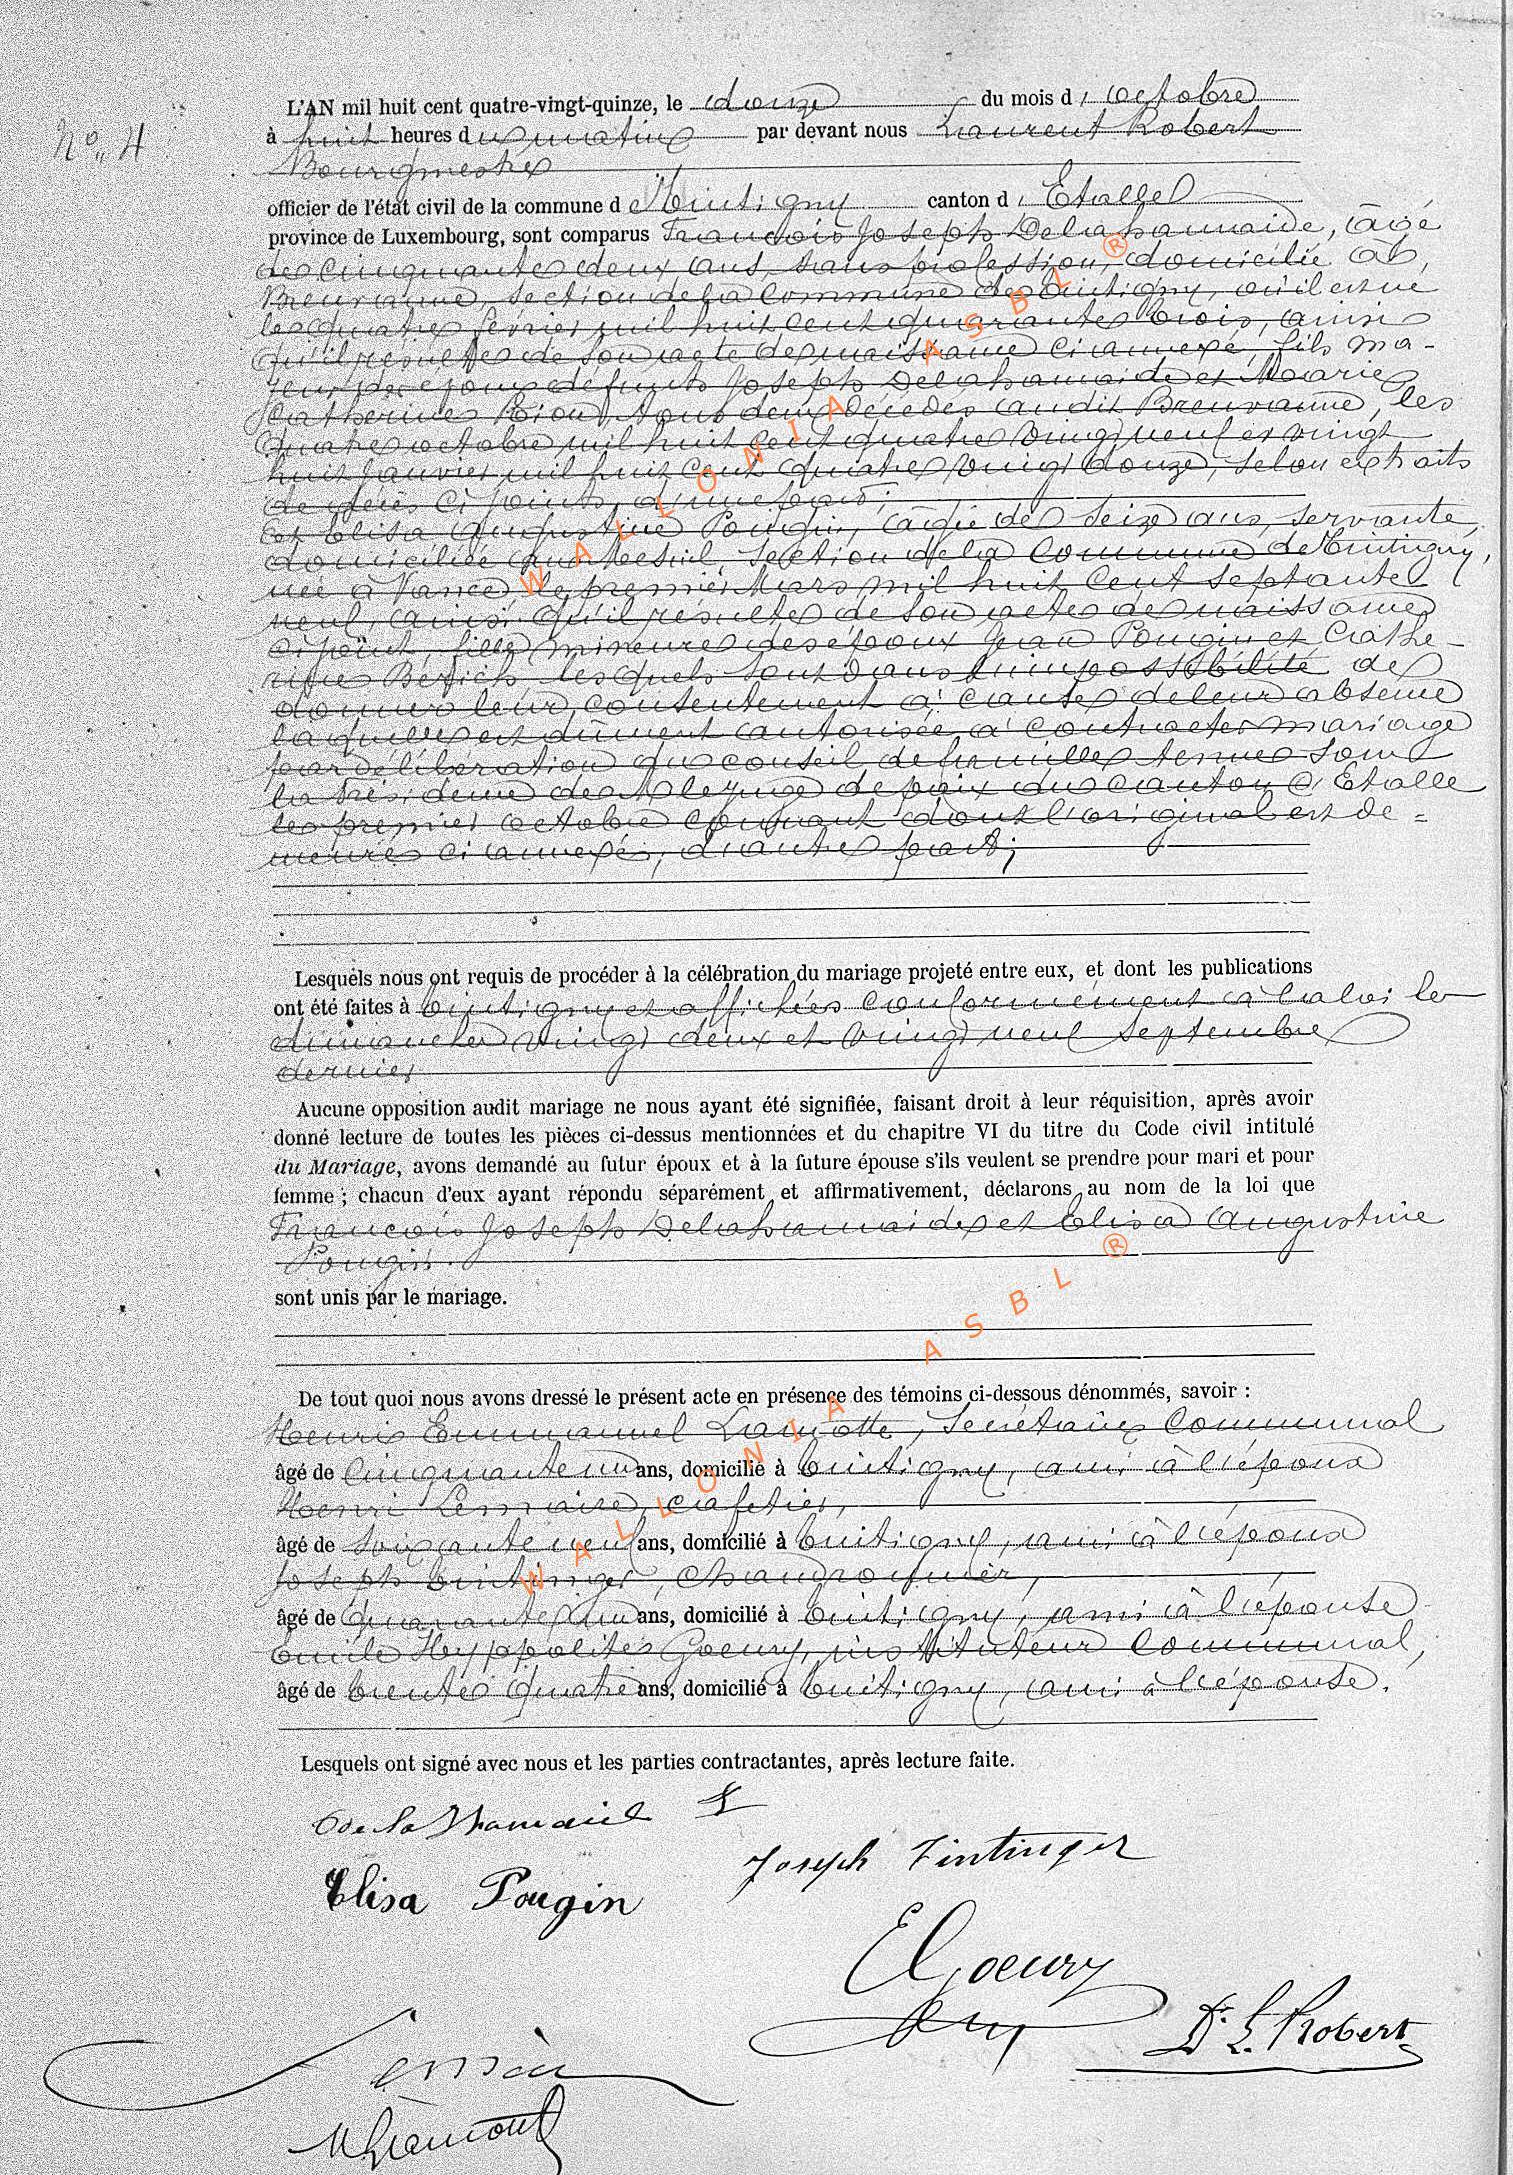 N° 4
L'AN mil huit cent quatre-vingt-quinze, le douze du mois d'octobre
à huit heures du matin par devant nous Laurent Robert
Bourgmestre
officier de l'état civil de la commune de Tintigny canton d'Etalle
province de Luxembourg, sont comparus François Joseph Delahamaide, âgé
de cinquante deux ans, sans profession, domicilié à
Breuvanne, section de la commune de Tintigny, où il est né
le quatre février mil huit cent quarante trois, ainsi
qu'il résulte de son acte de naissance ci annexé, fils ma-
jeur des époux défunts Joseph Delahamaide et Marie
Catherine tous deux décédés audit Breuvanne, les
quatre octobre mil huit cent quatre vingt neuf et vingt
huit janvier mil huit cent quatre vingt douze, selon extraits
de décès ci joints, d'une part;
Et Elisa Augustine Pougin, âgée de seize ans, servante,
domiciliée section de la commune de Tintigny,
née à Vance le premier Mars mil huit cent septante
neuf, ainsi qu'il résulte de son acte de naissance
ci joint, fille mineure des époux Jean Pougin et Cathe-
rine lesquels sont dans l'impossibilité de
donner leur consentement à cause de leur absence
laquelle est dûment autorisée à contracter mariage
par délibération du conseil de famille tenue sous
la Présidence de Mr le juge de paix du canton d'Etalle
le premier octobre courant dont l'original est de=
meuré ci annexé, d'autre part;
Lesquels nous ont requis de procéder à la célébration du mariage projeté entre eux, et dont les publications
ont été faites à Tintigny et affichées conformément à la loi les
dimanches vingt deux et vingt neuf septembre
dernier
Aucune opposition audit mariage ne nous ayant été signifiée, faisant droit à leur réquisition, après avoir
donné lecture de toutes les pièces ci-dessus mentionnées et du chapitre VI du titre du Code civil intitulé
du Mariage, avons demandé au futur époux et à la future épouse s'ils veulent se prendre pour mari et pour
femme ; chacun d'eux ayant répondu séparément et affirmativement, déclarons au nom de la loi que
François Joseph Delahamaide et Elisa Augustine
Pougin.
sont unis par le mariage.
De tout quoi nous avons dressé le présent acte en présence des témoins ci-dessous dénommés, savoir :
Henri Emmanuel Lamotte, Secrétaire communal
âgé de cinquante un ans, domicilié à Tintigny, ami à l'époux
Henri Lemaire, cafetier,
âgé de soixante neuf ans, domicilié à Tintigny, ami à l'époux
Joseph Tintinger, chaudronnier,
âgé de quarante un ans, domicilié à Tintigny, ami à l'épouse
Emile Hyppolite Goeury, instituteur communal,
âgé de trente quatre ans, domicilié à Tintigny, ami à l'épouse.
Lesquels ont signé avec nous et les parties contractantes, après lecture faite.
De la Hamaide
Joseph Tintinger
Elisa Pougin
E Goeury
Dr. L. Robert
WALLONIA ASBL ®
WALLONIA ASBL ®